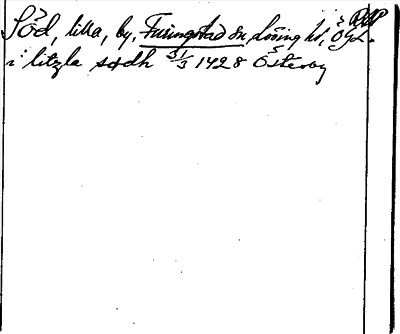 Söd, lilla, by, Furingstad sn, Lösing hd, Ögl.
i litzla sødh 31/3 1428 Österby